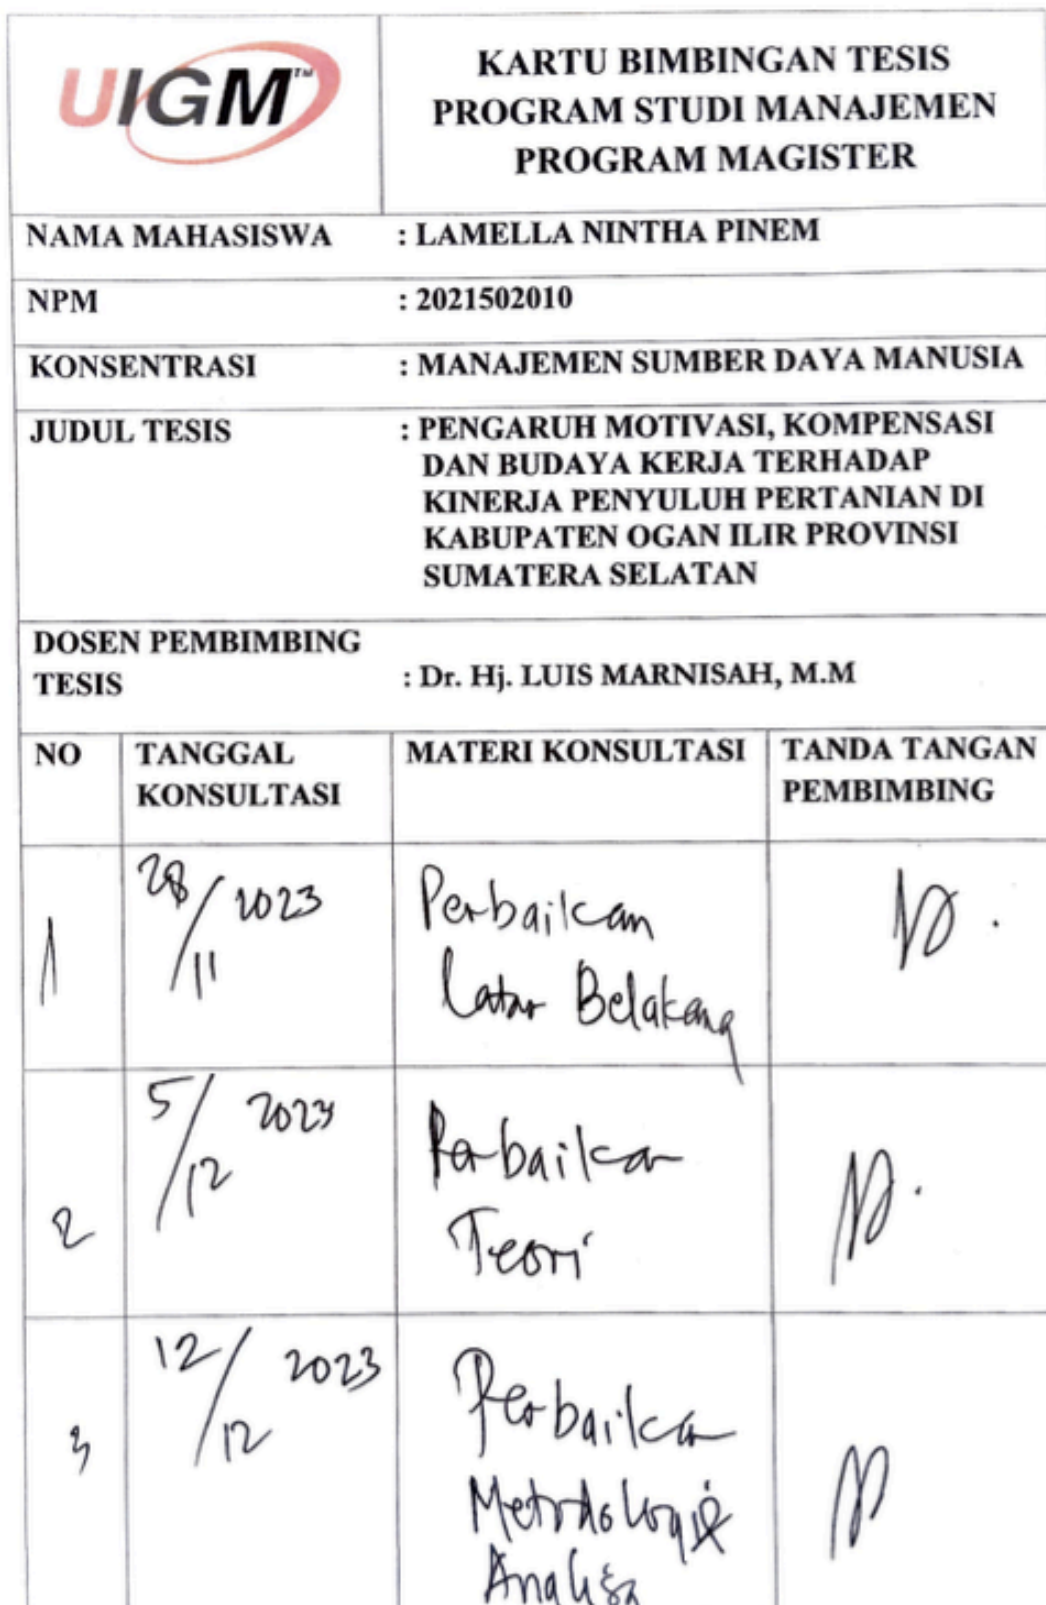 UIGM™
KARTU BIMBINGAN TESIS
PROGRAM STUDI MANAJEMEN
PROGRAM MAGISTER
NAMA MAHASISWA : LAMELLA NINTHA PINEM
NPM : 2021502010
KONSENTRASI : MANAJEMEN SUMBER DAYA MANUSIA
JUDUL TESIS : PENGARUH MOTIVASI, KOMPENSASI
DAN BUDAYA KERJA TERHADAP
KINERJA PENYULUH PERTANIAN DI
KABUPATEN OGAN ILIR PROVINSI
SUMATERA SELATAN
DOSEN PEMBIMBING
TESIS : Dr. Hj. LUIS MARNISAH, M.M
NO TANGGAL MATERI KONSULTASI TANDA TANGAN
KONSULTASI PEMBIMBING
1 28/11 2023 Perbaikan
Latar Belakang
2 5/12 2023 Perbaikan
Teori
3 12/12 2023 Perbaikan
Metodologi
Analisa